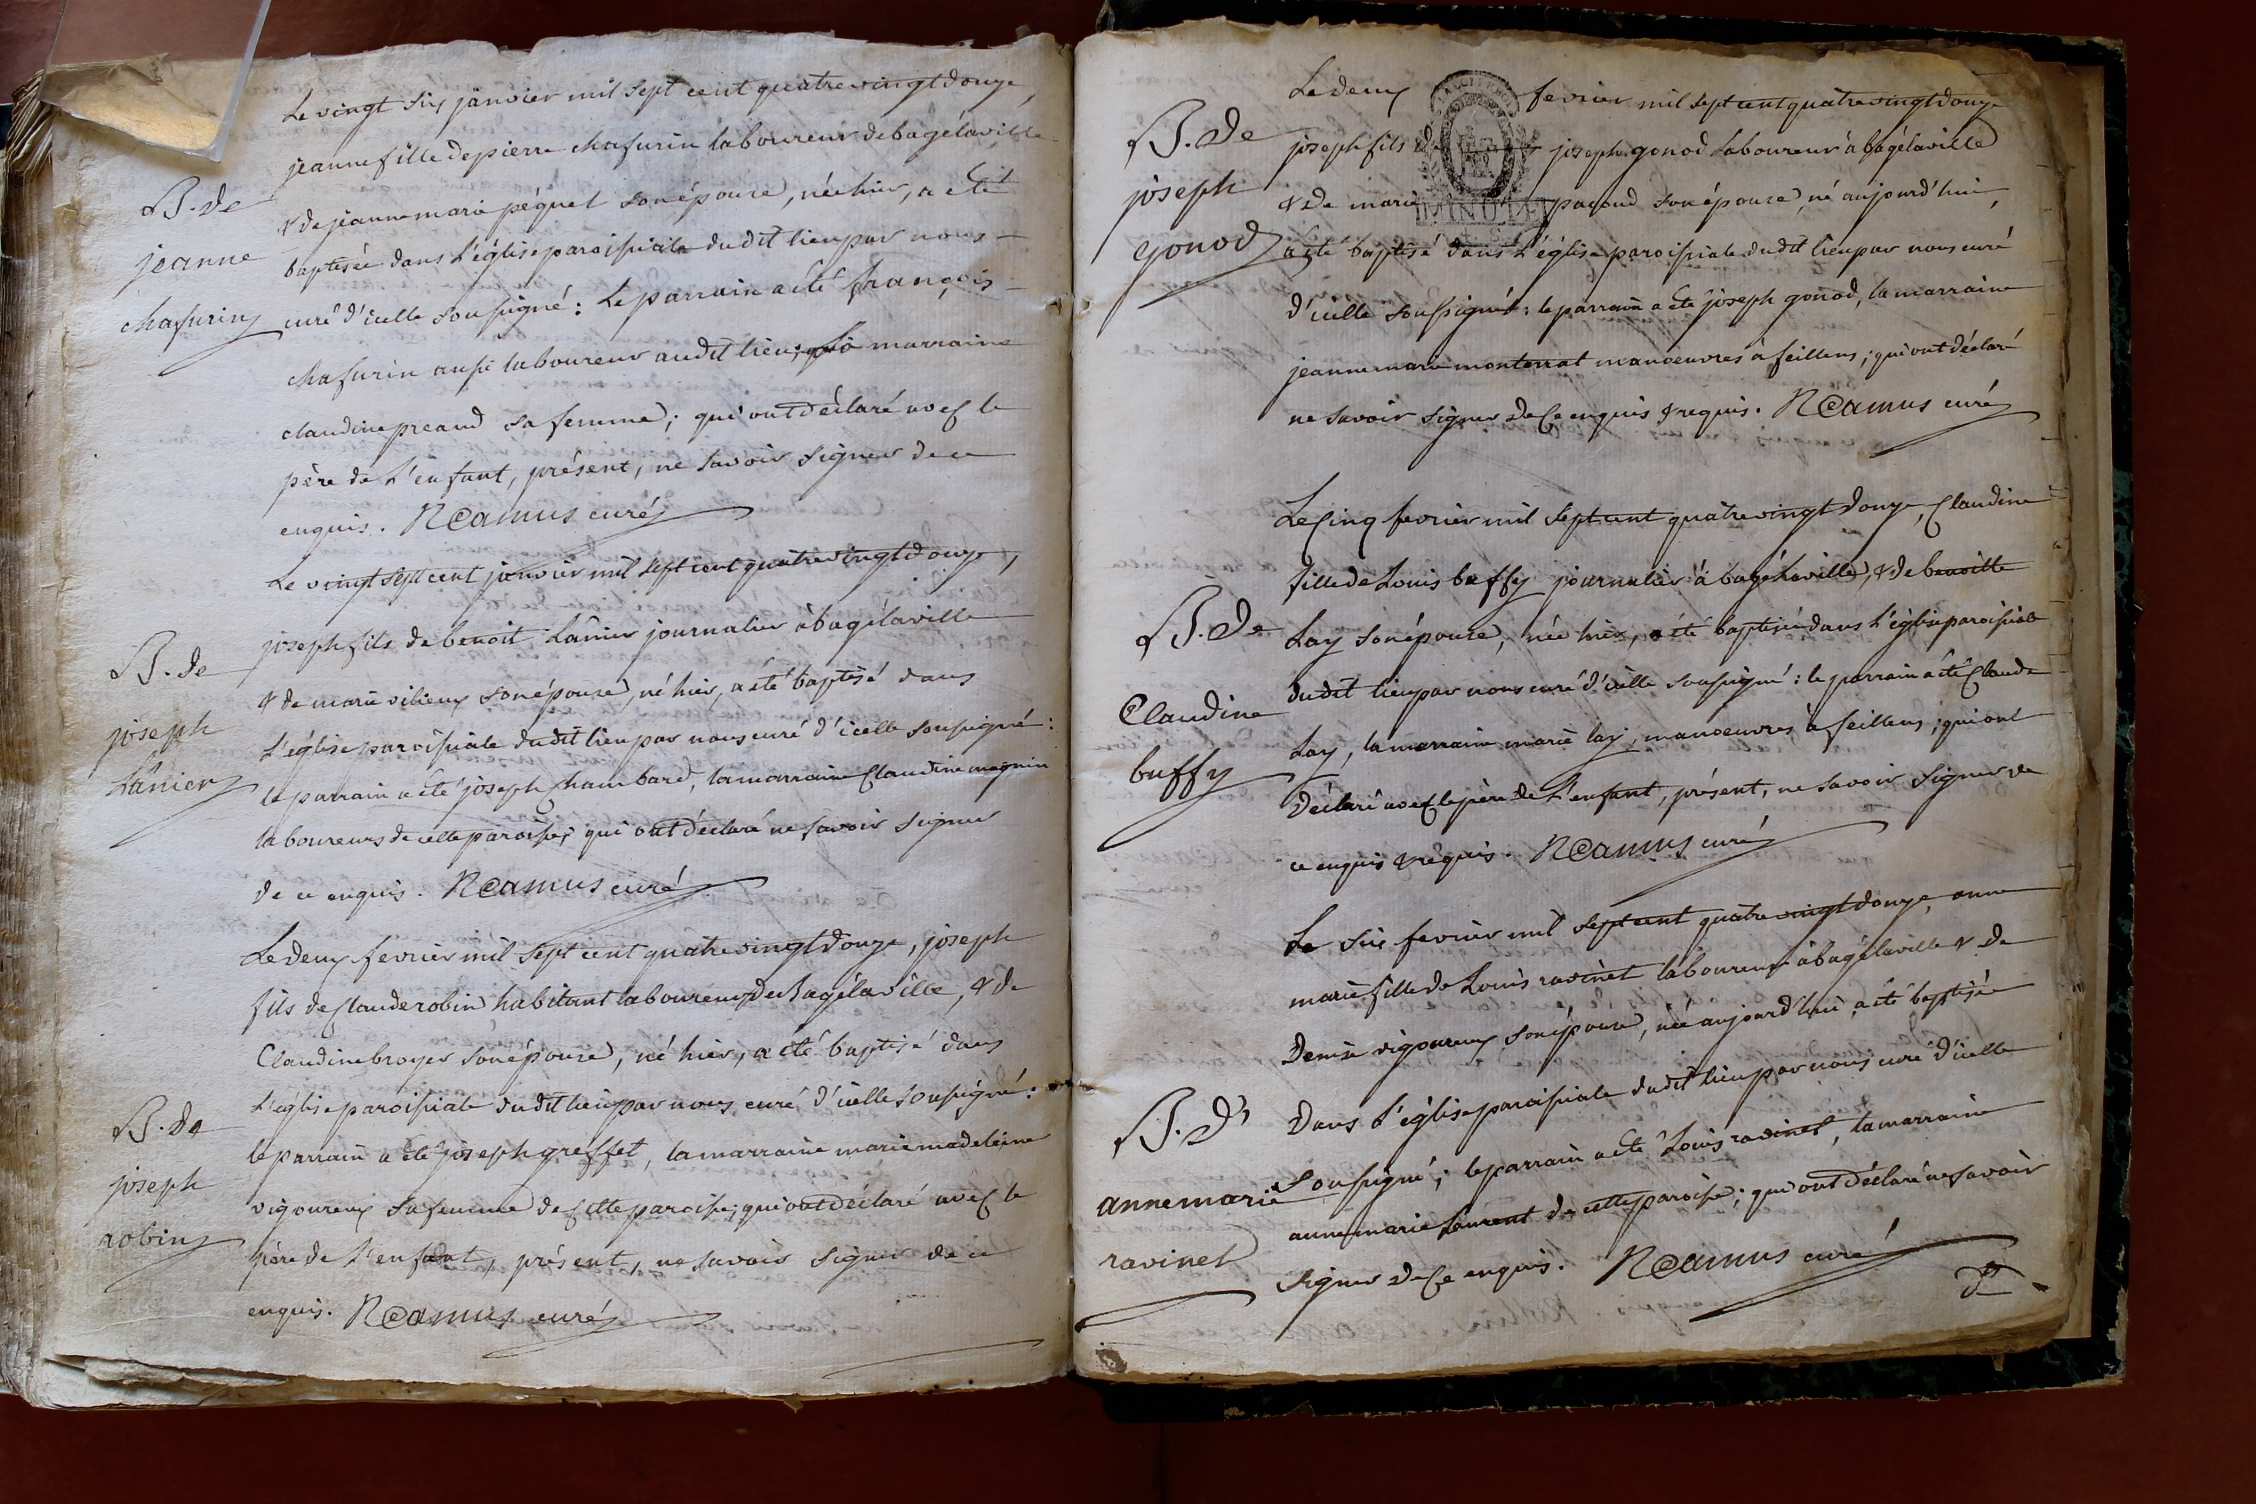 B. de
jeanne
chafurin
Le vingt six janvier mil sept cent quatre vingt douze,
jeanne fille de pierre chafurin laboureur de bagélaville
& de jeanne marie péquet son épouse, née hier, a été
baptisée dans l'église paroissiale dudit lieu par nous
curé d'icelle soussigné : le parrain a été françois
chafurin aussi laboureur audit lieu, la marraine
claudine preaud sa femme ; qui ont déclaré avec le
père de l'enfant, présent, ne savoir signer de ce
enquis. Camus curé
B. de
joseph
Lanier
Le vingt sept cent janvier mil sept cent quatre vingt douze,
joseph fils de benoit Lânier journalier à bagélaville
& de marie vilieux son épouse, né hier, a été baptisé dans
l'église paroissiale dudit lieu par nous curé d'icelle soussigné :
le parrain a été joseph Chambard, la marraine Claudine magnin
laboureurs de cette paroisse ; qui ont déclaré ne savoir signer
de ce enquis. Camus curé
B. de
joseph
robin
Le deux fevrier mil sept cent quatre vingt douze, joseph
fils de Claude robin habitant laboureur de Bagélaville, & de
Claudine broyer son épouse, né hier, a été baptisé dans
l'église paroissiale dudit lieu par nous curé d'icelle soussigné :
le parrain a été joseph greffet, la marraine marie madeleine
vigoureux sa femme de Cette paroisse ; qui ont déclaré avec le
père de l'enfant, présent, ne savoir signer de ce
enquis. Camus curé
B. de
joseph
gonod
Le deux fevrier mil sept cent quatre vingt douze
joseph fils de joseph gonod laboureur à bagélaville
& de marie pacoud son épouse, né aujourd'hui,
a été baptisé dans l'église paroissiale dudit lieu par nous curé
d'icelle soussigné : le parrain a été joseph gonod, la marraine
jeanne marie monterrat manoeuvres à feillens ; qui ont déclaré
ne savoir signer de Ce enquis & requis. Camus curé
MINUTE
B. de
Claudine
buffy
Le Cinq fevrier mil sept cent quatre vingt douze, Claudine
fille de Louis buffy journalier à bagélaville, & de benoitte
Lay son épouse, née hier, a été baptisée dans l'église paroissiale
dudit lieu par nous curé d'icelle soussigné : le parrain a été Claude
Lay, la marraine marie lay, manoeuvres à feillens ; qui ont
déclaré avec le père de l'enfant, présent, ne savoir signer de
ce enquis & requis. Camus curé
B. d'
anne marie
ravinet
Le six fevrier mil sept cent quatre vingt douze, anne
marie fille de Louis ravinet laboureur à bagélaville & de
Denise vigoureux son épouse, née aujourd'hui, a été baptisée
Dans l'église paroissiale dudit lieu par nous curé d'icelle
soussigné ; le parrain a été Louis ravinet, la marraine
anne marie Laurent de cette paroisse ; qui ont déclaré ne savoir
signer de Ce enquis. Camus curé